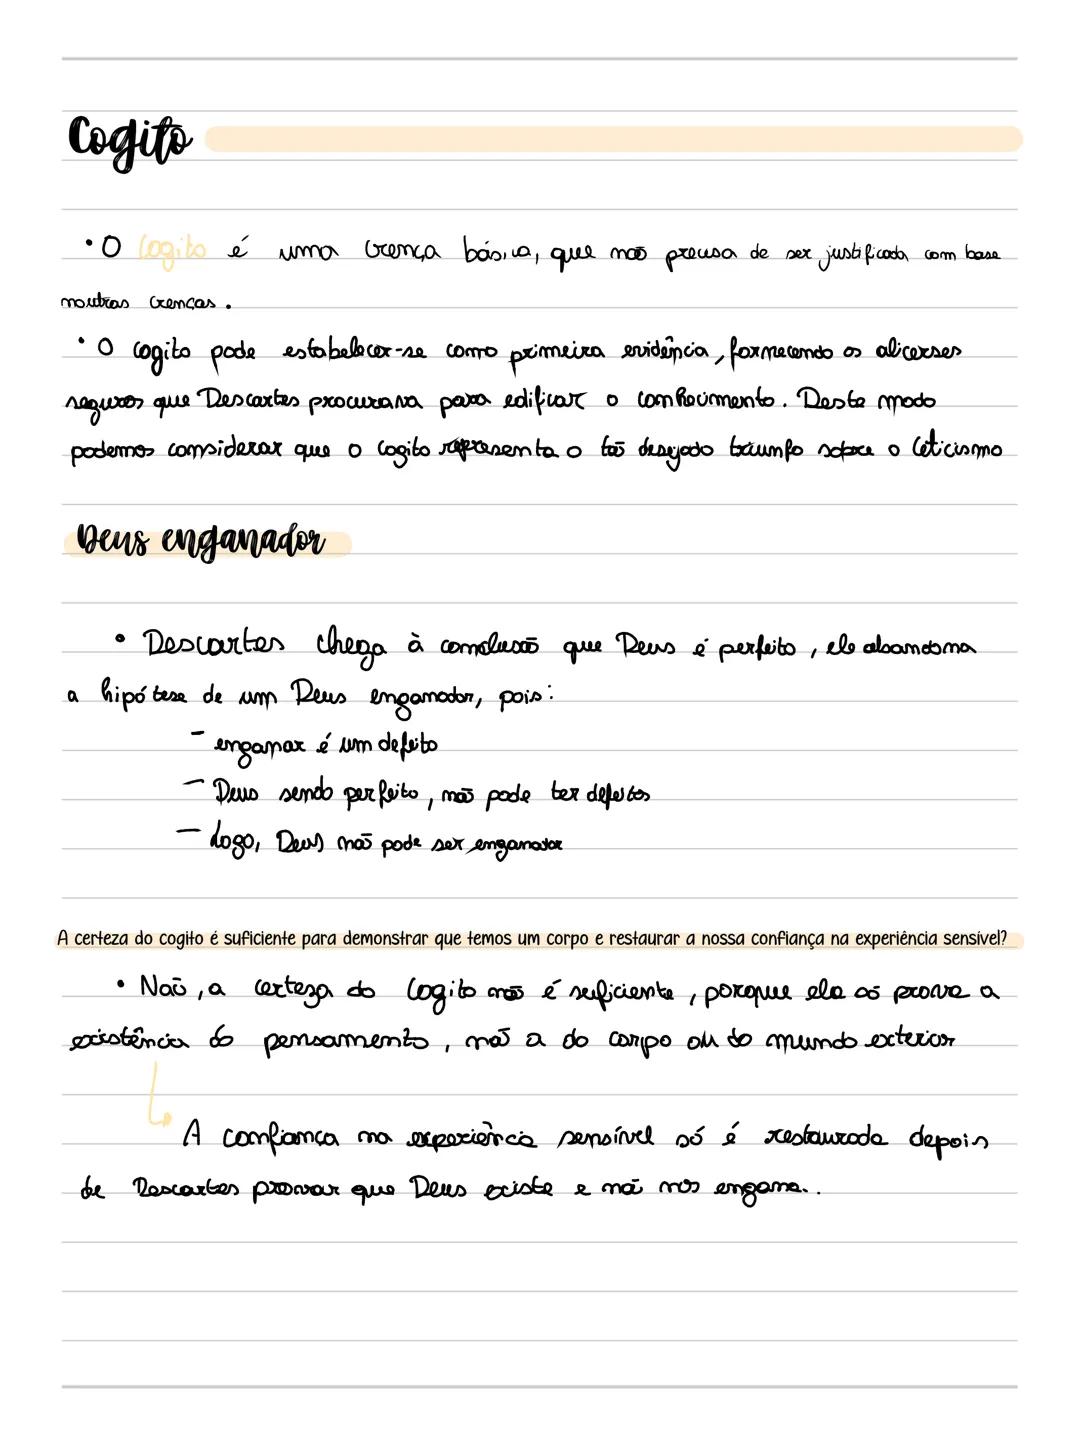 Cogito
• O Cogito é uma crença básica, que não precisa de ser justificada com base
noutras crenças.
• O cogito pode estabelecer-se como primeira evidência, fornecendo os alicerses
seguros que Descartes procurava para edificar o conhecimento. Deste modo
podemos considerar que o cogito representa o tão desejado triunfo sobre o Ceticismo
Deus enganador
• Descartes chega à conclusão que Deus é perfeito, ele abandona
a hipótese de um Deus enganador, pois:
- enganar é um defeito
- Deus sendo perfeito, não pode ter defeitos
- Logo, Deus não pode ser enganador
A certeza do cogito é suficiente para demonstrar que temos um corpo e restaurar a nossa confiança na experiência sensível?
• Não, a certeza do Cogito não é suficiente, porque ela só prova a
existência do pensamento, não a do corpo ou do mundo exterior
A confiança na experiência sensível só é restaurada depois
de Descartes provar que Deus existe e não nos engana..